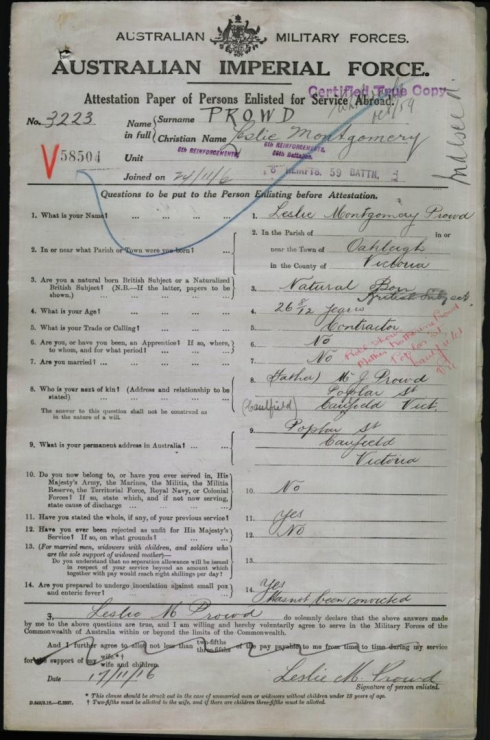 AUSTRALIAN MILITARY FORCES.
AUSTRALIAN IMPERIAL FORCE.
Certified True Copy
Attestation Paper of Persons Enlisted for Service Abroad.
No. 3223
Name in full { Surname PROWD
Christian Name Leslie Montgomery
V58504
Unit
8th REINFORCEMENTS
Joined on 24/11/6
REINFTS. 59 BATTN.
Questions to be put to the Person Enlisting before Attestation.
1. What is your Name? ... ... ... 1. Leslie Montgomery Prowd
2. In or near what Parish or Town were you born? ... 2. In the Parish of in or
near the Town of Oakleigh
in the County of Victoria
3. Are you a natural born British Subject or a Naturalized British Subject? (N.B.—If the latter, papers to be shown.) 3. Natural Born British Subject
4. What is your Age? ... ... ... 4. 26 8/12 years
5. What is your Trade or Calling? ... ... ... 5. Contractor
6. Are you, or have you been, an Apprentice? If so, where, to whom, and for what period? ... 6. No
7. Are you married? ... ... ... 7. No
8. Who is your next of kin? (Address and relationship to be stated) 8. (Father) Mr J Prowd
Poplar St
(Caulfield) Caufield Vict.
The answer to this question shall not be construed as in the nature of a will.
9. What is your permanent address in Australia? ... 9. Poplar St
Caufield
Victoria
10. Do you now belong to, or have you ever served in, His Majesty's Army, the Marines, the Militia, the Militia Reserve, the Territorial Force, Royal Navy, or Colonial Forces? If so, state which, and if not now serving, state cause of discharge ... 10. No
11. Have you stated the whole, if any, of your previous service? 11. Yes
12. Have you ever been rejected as unfit for His Majesty's Service? If so, on what grounds? 12. No
13. (For married men, widowers with children, and soldiers who are the sole support of widowed mother)—
Do you understand that no separation allowance will be issued in respect of your service beyond an amount which together with pay would reach eight shillings per day? 13.
14. Are you prepared to undergo inoculation against small pox and enteric fever? 14. Yes
Has not been convicted
I, Leslie M Prowd do solemnly declare that the above answers made
by me to the above questions are true, and I am willing and hereby voluntarily agree to serve in the Military Forces of the
Commonwealth of Australia within or beyond the limits of the Commonwealth.
And I further agree to allot not less than two-fifths three-fifths of the pay payable to me from time to time during my service
for the support of my wife*†
wife and children.
Date 17/11/16
Leslie M. Prowd
Signature of person enlisted.
* This clause should be struck out in the case of unmarried men or widowers without children under 18 years of age.
† Two-fifths must be allotted to the wife, and if there are children three-fifths must be allotted.